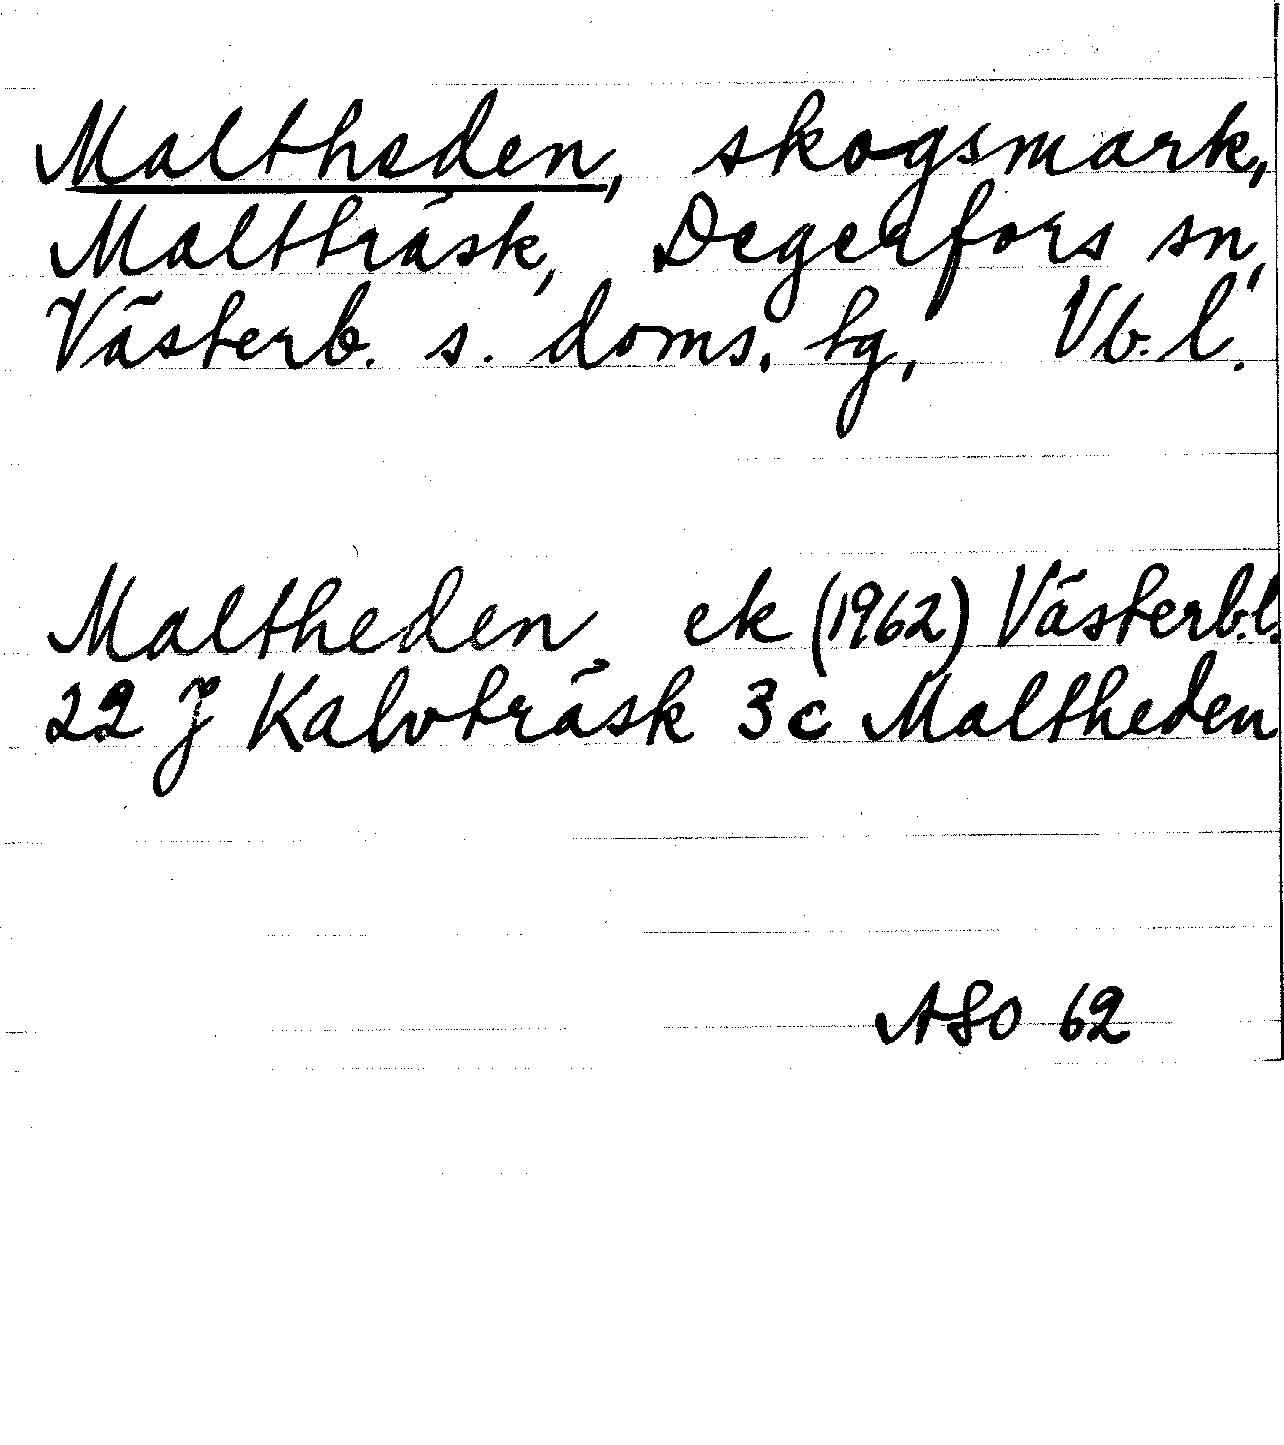 Maltheden, skogsmark,
Maltträsk, Degerfors sn,
Västerb. s. doms. tg, Vb. l.
Maltheden ek (1962) Västerb.l.
22 J Kalvträsk 3 c Maltheden
ASO 62